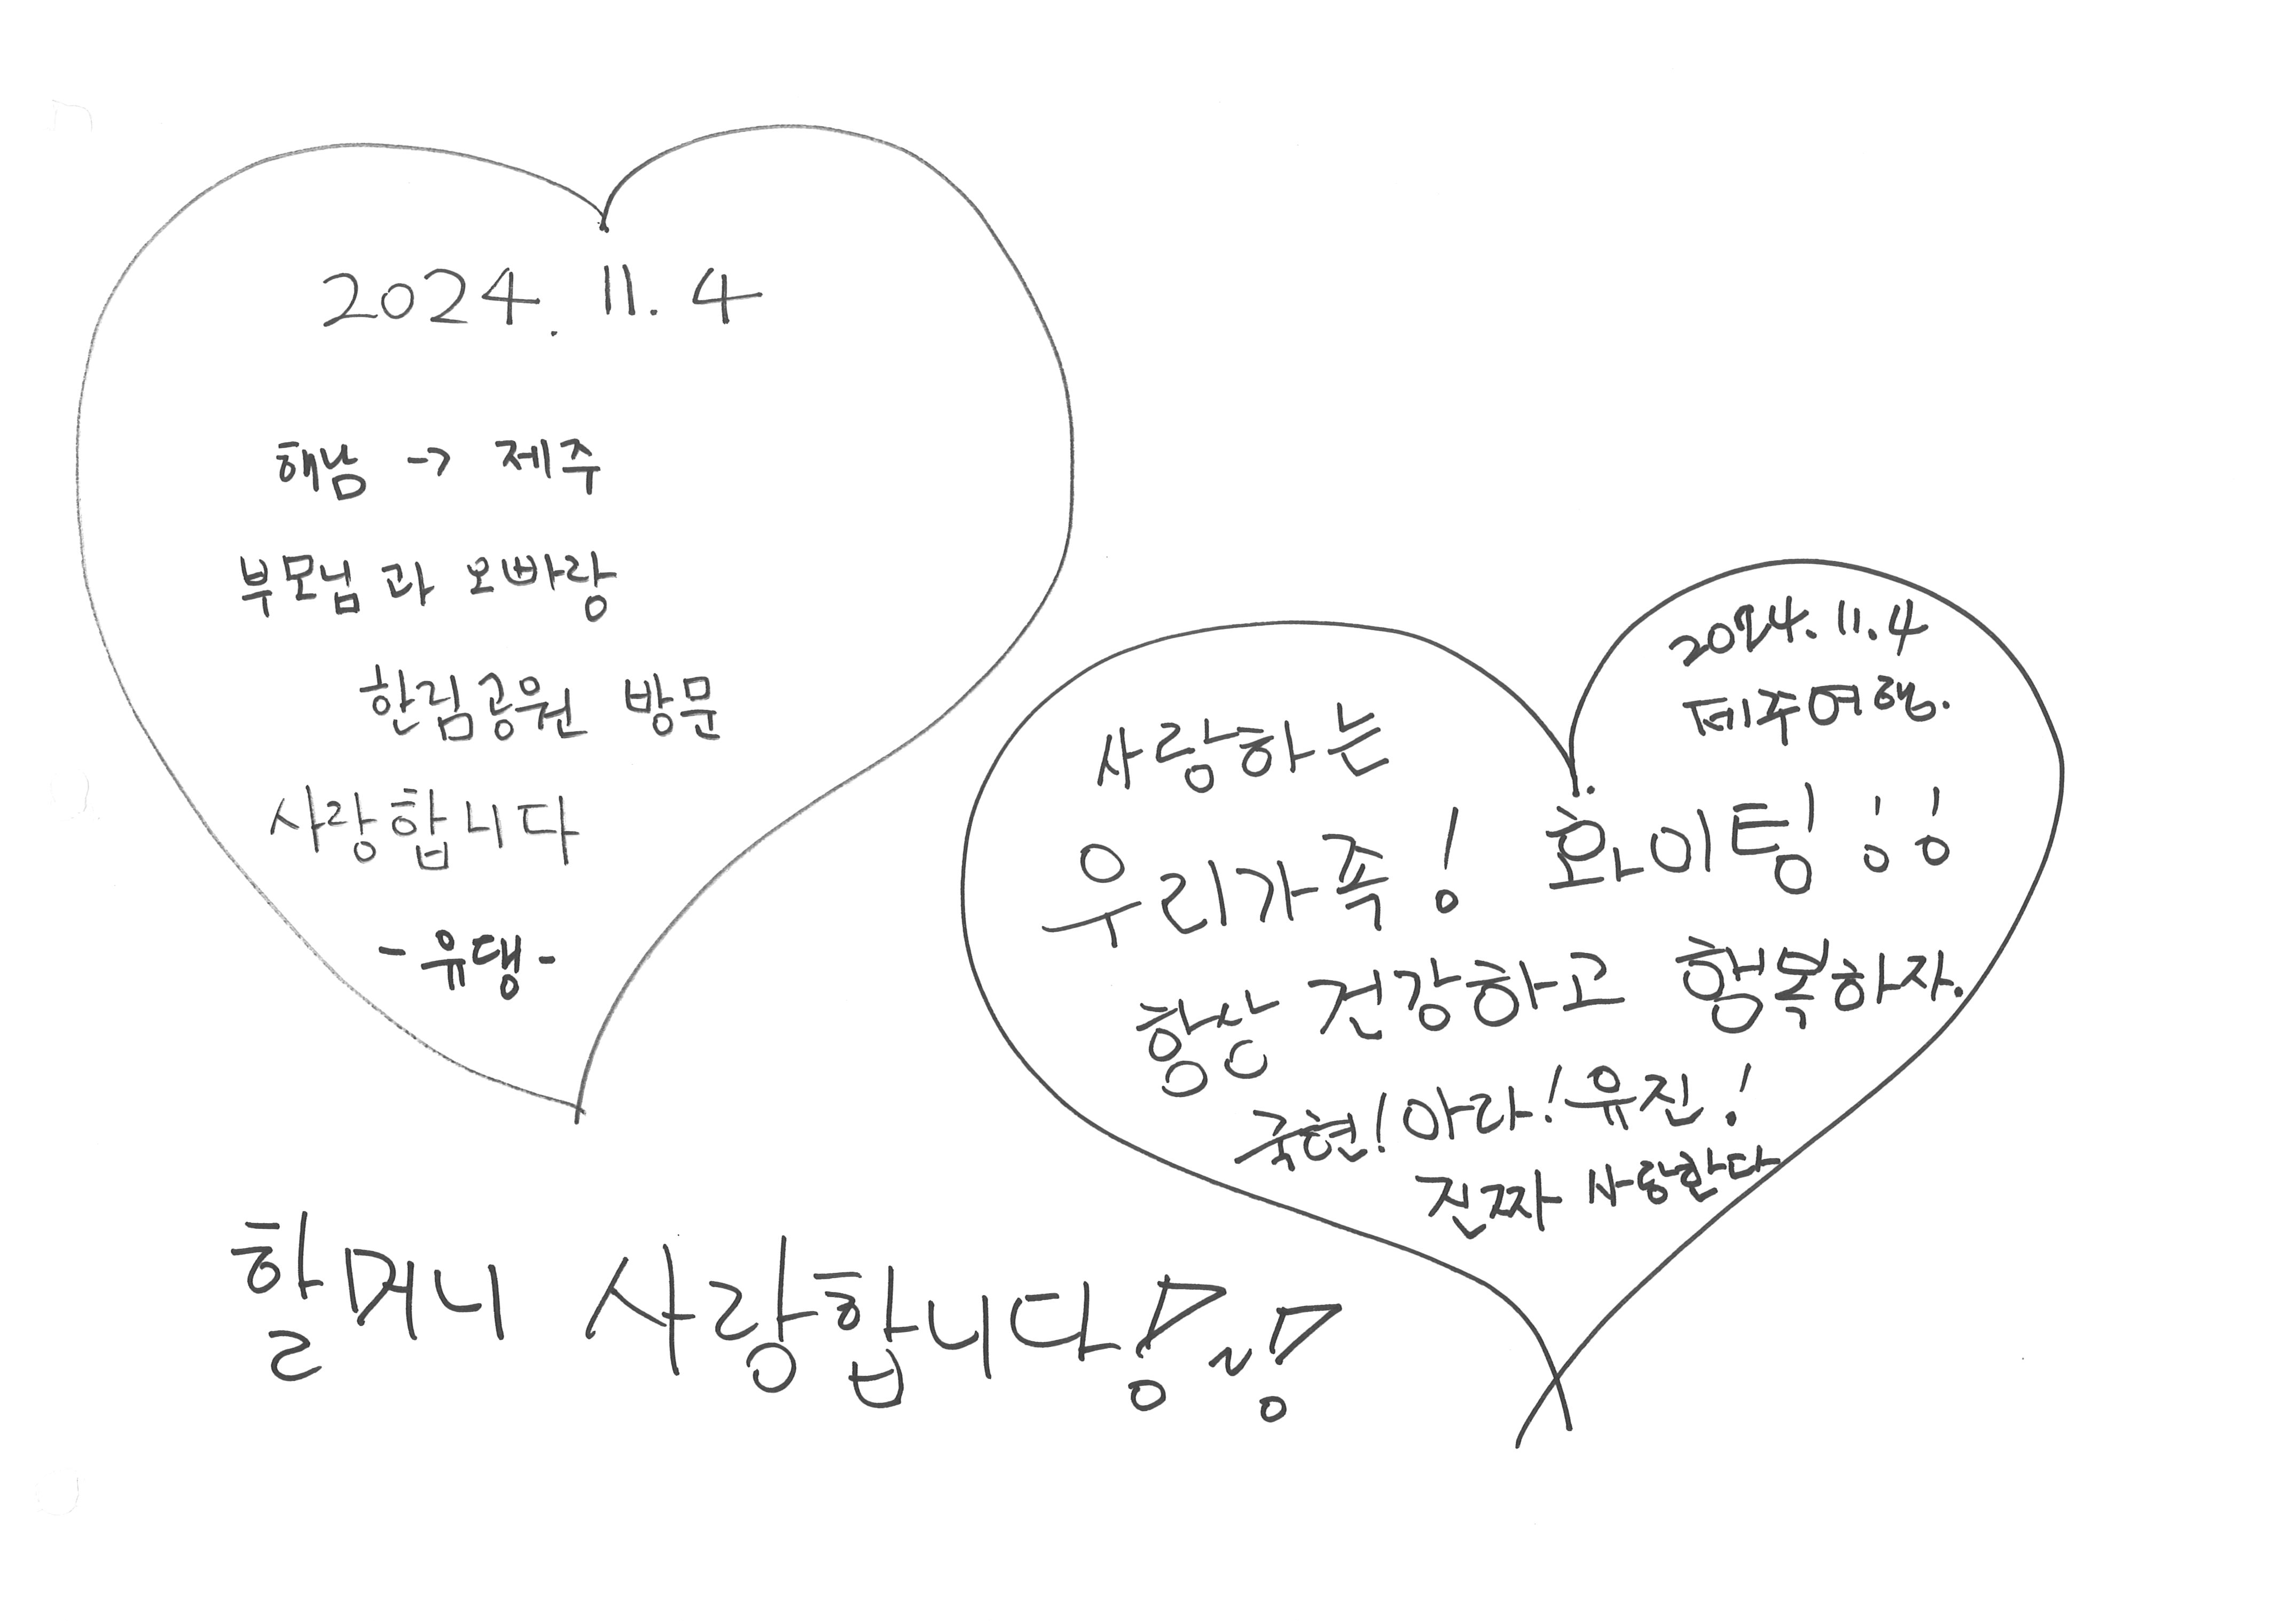 2024. 11. 4
해남 -> 제주
부모님과 오빠랑
한림공원 방문
사랑합니다
- 유댕 -
2024. 11. 4
제주여행.
사랑하는
우리가족! 화이팅!!
항상 건강하고 행복하자.
국현! 아라! 유진!
진짜 사랑한다
할머니 사랑합니다!~!